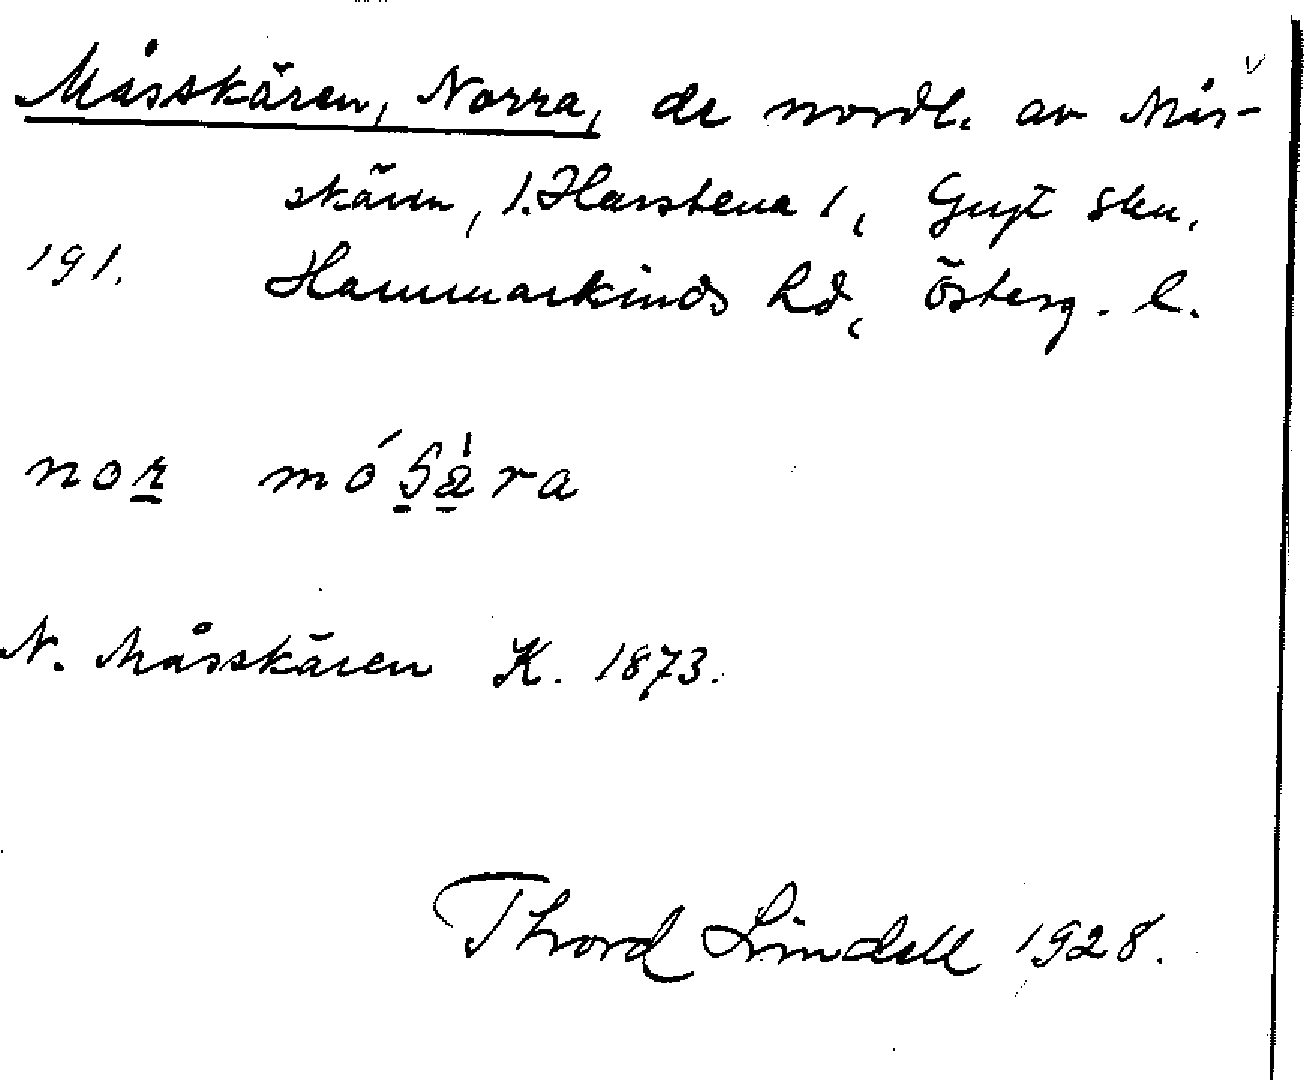 Måsskären, Norra, de nordl. av Mås-
skären, l. Harstena 1, Gryt skn,
191. Hammarkinds hd, Österg. l.
nor mósä̀ra
N. Måsskären K. 1873.
Thord Lindell 1928.